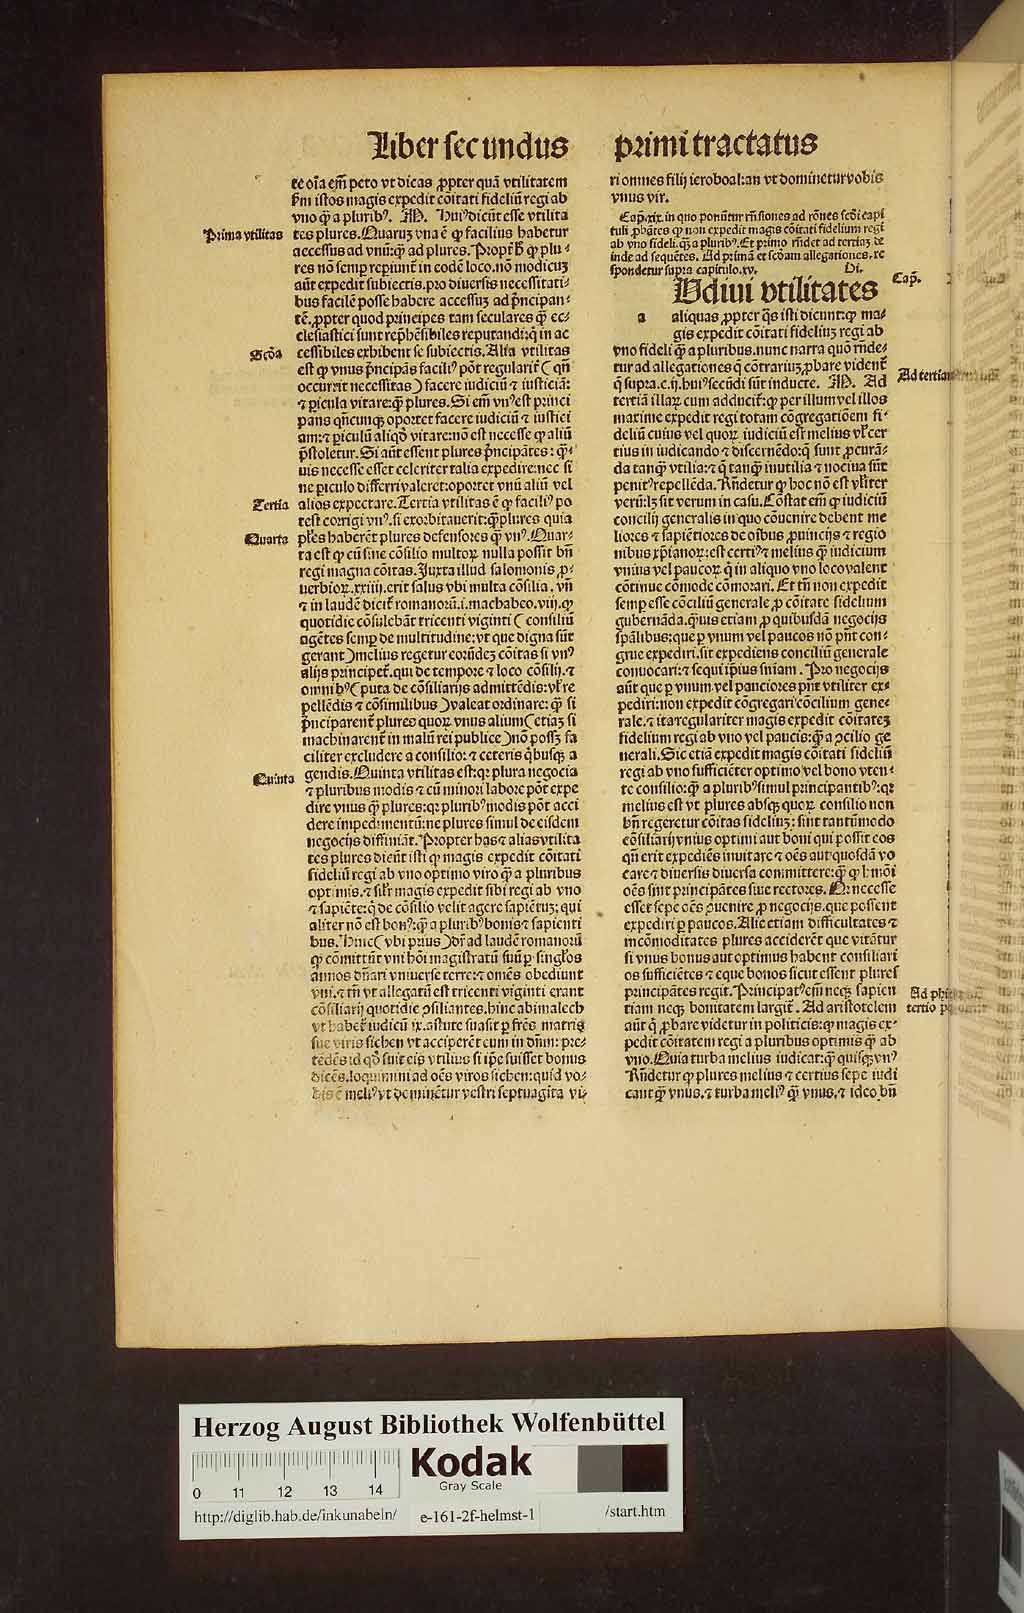 Liber secundus
te oīa em̄ peto vt dicas ꝓpter quā vtilitatem
istos magis expedit cōitati fideliū regi ab
vno qͣ̄ a pluribꝰ. M. Huiꝰ dicūt esse vtilita
Prima vtilitas
tes plures. Quarum vna ē ꝙ facilius habetur
accessus ad vnū: qͣ̄ ad plures. ꝙ plu⸗
res nō semꝑ reꝑiunt̄ in eodē loco. nō modicuꝫ
aūt expedit subiectis. pro diuersis necessitati⸗
bus facilē posse habere accessuꝫ ad pͥncipan⸗
tē. ꝓpter quod principes tam seculares qͣ̄ ec⸗
clesiastici sunt rep̄hēsibiles reputandi: qͥ in ac
Scd̄a
cessibiles exhibent se subiectis. Alia vtilitas
est ꝙ vnus pͥncipās faciliꝰ pōt regularit̄ (qn̄
occurrit necessitas) facere iudiciū ⁊ iusticiā:
⁊ ꝑicula vitare: qͣ̄ plures. Si em̄ vnꝰ est princi
pans qn̄cunqꝫ oportet facere iudiciū ⁊ iustici
am: ⁊ ꝑiculū aliqd̓ vitare: nō est necesse ꝙ aliū
p̄stoletur. Si aūt essent plures pͥncipātes: qͣ̄⸗
uis necesse esset celeriter talia expedire: nec si
ne ꝑiculo differri valeret: oportet vnū aliū vel
Tertia
alios expectare. Tertia vtilitas ē ꝙ faciliꝰ po
test corrigi vnꝰ. si exorbitauerit: qͣ̄ plures quia
Quarta
pl̄es haberēt plures defensores qͣ̄ vnꝰ. Quar⸗
ta est ꝙ cū sine cōsilio multoꝝ nulla possit bn̄
regi magna cōitas. Juxta illud salomonis ꝓ⸗
uerbioꝝ. xxiiij. erit salus vbi multa cōsilia. vn̄
⁊ in laudē dicit̄ romanorū. i. machabeo. viij. ꝙ
quotidie cōsulebāt tricenti viginti (consiliū
agētes semꝑ de multitudine: vt que digna sūt
gerant) melius regetur eorūdeꝫ cōitas si vnꝰ
alijs principet̄. qui de tempore ⁊ loco cōsilij. ⁊
omnibꝰ (puta de cōsiliarijs admittēdis: vl̓ re
pellēdis ⁊ cōsimilibus) valeat ordinare: qͣ̄ si
pͥnciparent̄ plures quoꝝ vnus alium (etiaꝫ si
machinarent̄ in malū rei publice) nō possꝫ fa
ciliter excludere a consilio: ⁊ ceteris qͥbusqꝫ a
Quinta
gendis. Quinta vtilitas est: qꝛ plura negocia
⁊ pluribus modis ⁊ cū minori labore pōt expe
dire vnus qͣ̄ plures: qꝛ pluribꝰ modis pōt acci
dere impedimentū: ne plures simul de eisdem
negocijs diffiniāt. Propter has ⁊ alias vtilita
tes plures dicūt isti ꝙ magis expedit cōitati
fideliū regi ab vno optimo viro qͣ̄ a pluribus
optimis. ⁊ sil̓r magis expedit sibi regi ab vno
⁊ sapiēte: qͥ de cōsilio velit agere sapiētuꝫ: qui
aliter nō est bonꝰ: qͣ̄ a pluribꝰ bonis ⁊ sapienti
bus. Hinc (vbi prius) dr̄ ad laudē romanorū
ꝙ cōmittūt vni hoī magistratū suū ꝑ singl̓os
annos dn̄ari vniuerse terre: ⁊ omēs obediunt
vni. ⁊ tn̄ vt allegatū est tricenti viginti erant
cōsiliarij quotidie ꝯsiliantes. hinc abimalech
vt habet̄ iudicū ix. astute suasit ꝑ fr̄es matris
sue viris sichen vt acciperēt eum in dn̄m: p̄te⸗
tēdēs id qd̓ fuit eis vtilius si ip̄e fuisset bonus
dicēs. loquimini ad oēs viros sichen: quid vo⸗
bis ē meliꝰ vt dominētur vestri septuagīta vi⸗
primi tractatus
ri omnes filij ieroboal: an vt dominetur vobis
vnus vir.
Cap̄. xix. in quo ponūtur rn̄siones ad rōnes scd̄i capi
tuli ꝓbātes ꝙ non expedit magis cōitati fidelium regi
ab vno fideli. qͣ̄ a pluribꝰ. Et primo rn̄det ad tertiaꝫ de
inde ad sequētes. Ad primā et scd̄am allegationes. re
spondetur supra capitulo. xv. Di.
Cap̄.
Udiui vtilitates
a
aliquas ꝓpter qͣs isti dicunt: ꝙ ma⸗
gis expedit cōitati fideliuꝫ regi ab
vno fideli qͣ̄ a pluribus. nunc narra quō rn̄de⸗
tur ad allegationes q̄ cōtrariuꝫ ꝓbare vident̄
Ad tertiam
q̄ supra. c. ij. huiꝰ secūdi sūt inducte. M. Ad
tertiā illaꝝ cum adducit̄: ꝙ per illum vel illos
maxime expedit regi totam cōgregatiōem fi⸗
deliū cuius vel quoꝝ iudiciū est melius vl̓ cer
tius in iudicando ⁊ discernēdo: q̄ sunt ꝓcurā⸗
da tanqͣ̄ vtilia: ⁊ q̄ tanqͣ̄ inutilia ⁊ nociua sūt
penitꝰ repellēda. Rn̄detur ꝙ hoc nō est vl̓iter
verū: lꝫ sit verum in casu. Cōstat em̄ ꝙ iudiciū
concilij generalis in quo cōuenire debent me
liores ⁊ sapiētiores de oībus ꝓuincijs ⁊ regio
nibus xp̄ianoꝝ: est certiꝰ ⁊ melius qͣ̄ iudicium
vnius vel paucoꝝ qͥ in aliquo vno loco valent
cōtinue cōmode cōmorari. Et tn̄ non expedit
semꝑ esse cōciliū generale ꝓ cōitate fidelium
gubernāda. qͣ̄uis etiam ꝓ quibusdā negocijs
spālibus: que ꝑ vnum vel paucos nō pn̄t con⸗
grue expediri. sit expediens conciliū generale
conuocari: ⁊ sequi ip̄ius sn̄iam. Pro negocijs
aūt que ꝑ vnum vel pauciores pn̄t vtiliter ex⸗
pediri: non expedit cōgregari cōcilium gene⸗
rale. ⁊ ita regulariter magis expedit cōitateꝫ
fidelium regi ab vno vel paucis: qͣ̄ a ꝯcilio ge
nerali. Sic etiā expedit magis cōitati fideliū
regi ab vno sufficiēter optimo vel bono vten⸗
te consilio: qͣ̄ a pluribꝰ simul principantibꝰ: qꝛ
melius est vt plures absqꝫ quoꝝ consilio non
bn̄ regeretur cōitas fideliuꝫ: sint tantūmodo
cōsiliarij vnius optimi aut boni qui possit eos
qn̄ erit expediēs inuitare ⁊ oēs aut quosdā vo
care ⁊ diuersis diuersa committere: qͣ̄ ꝙ hmōi
oēs sint principātes siue rectores. Nr̄ necesse
esset sepe oēs ꝯuenire ꝓ negocijs. que possent
expediri ꝑ paucos. Alie etiam difficultates ⁊
incōmoditates plures acciderēt que vitātur
si vnus bonus aut optimus habent consiliari
os sufficiētes ⁊ eque bonos sicut essent plures
principātes regit. Principatꝰ em̄ neqꝫ sapien
Ad
tiam neqꝫ bonitatem largit̄. Ad aristotelem
tertio
aūt qͥ ꝓbare videtur in politicis: ꝙ magis ex⸗
pedit cōitatem regi a pluribus optimis qͣ̄ ab
vno. Quia turba melius iudicat: qͣ̄ quisqꝫ vnꝰ
Rn̄detur ꝙ plures melius ⁊ certius sepe iudi
cant qͣ̄ vnus. ⁊ turba meliꝰ qͣ̄ vnus. ⁊ ideo bn̄
Herzog August Bibliothek Wolfenbüttel
Kodak
Gray Scale
0 11 12 13 14
http://diglib.hab.de/inkunabeln/ e-161-2f-helmst-1 /start.htm